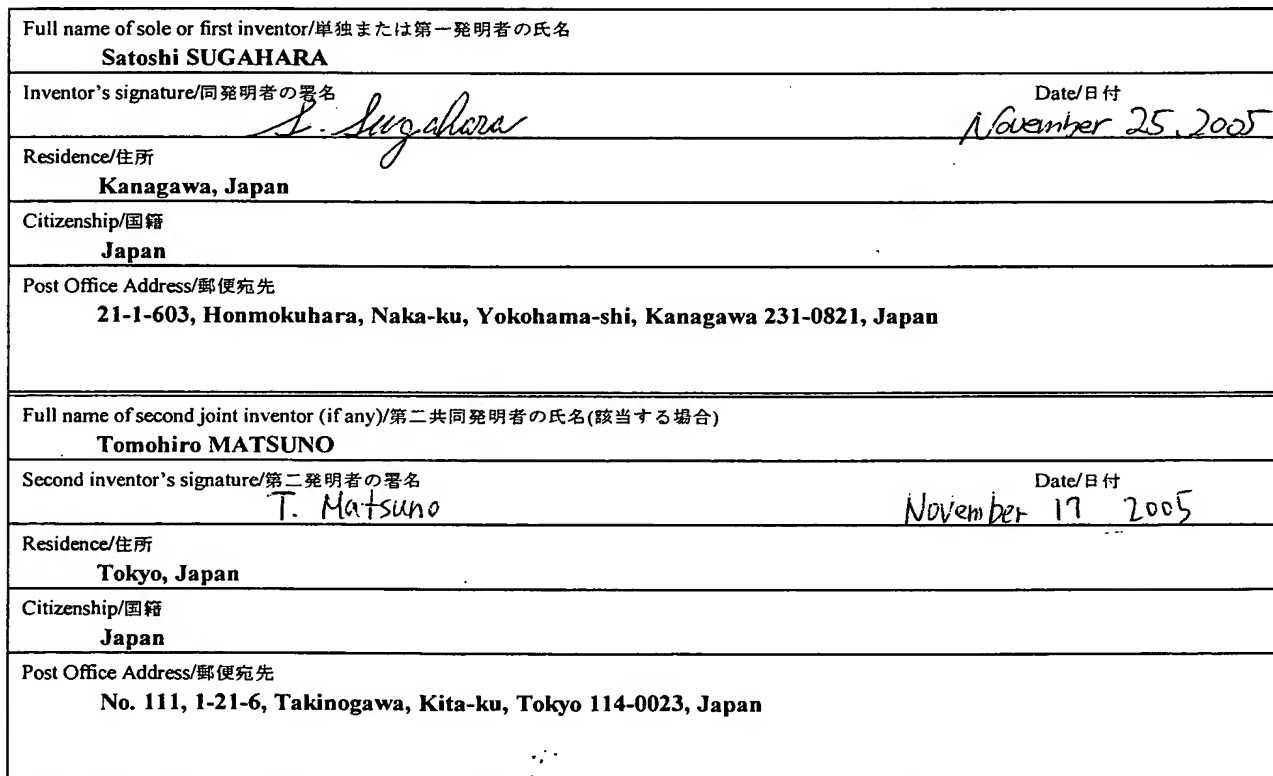 Full name of sole or first inventor/単独または第一発明者の氏名
Satoshi SUGAHARA
Inventor's signature/同発明者の署名 Date/日付
S. Sugahara November 25, 2005
Residence/住所
Kanagawa, Japan
Citizenship/国籍
Japan
Post Office Address/郵便宛先
21-1-603, Honmokuhara, Naka-ku, Yokohama-shi, Kanagawa 231-0821, Japan
Full name of second joint inventor (if any)/第二共同発明者の氏名(該当する場合)
Tomohiro MATSUNO
Second inventor's signature/第二発明者の署名 Date/日付
T. Matsuno November 17 2005
Residence/住所
Tokyo, Japan
Citizenship/国籍
Japan
Post Office Address/郵便宛先
No. 111, 1-21-6, Takinogawa, Kita-ku, Tokyo 114-0023, Japan